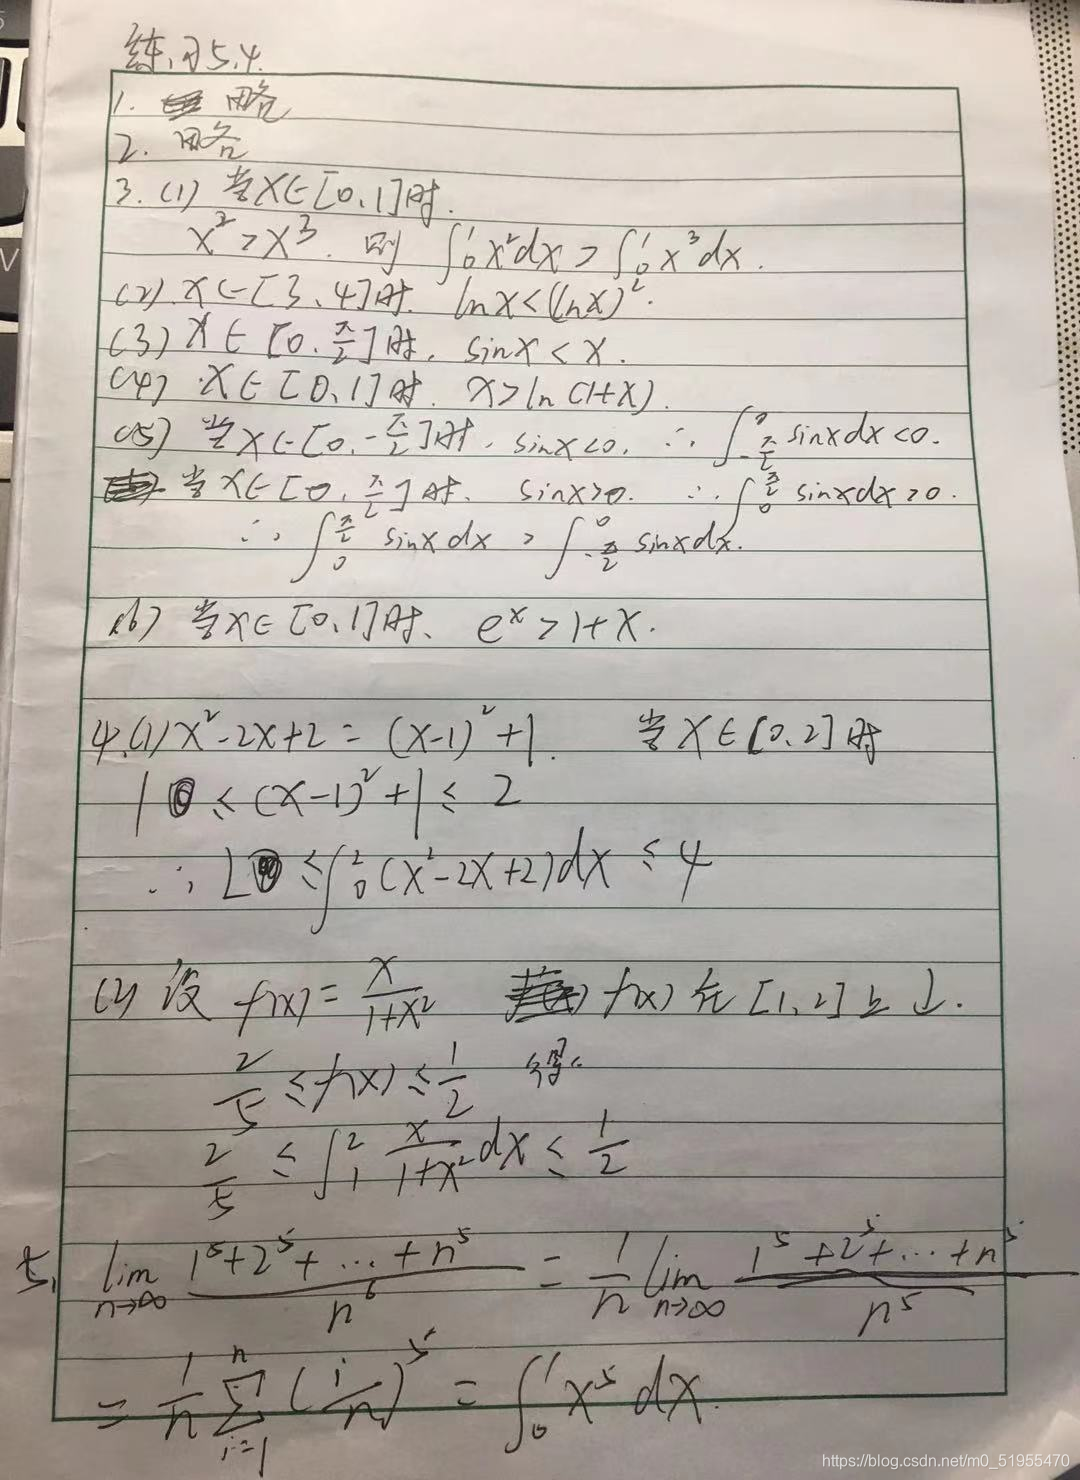 练习5.4.
1. 略
2. 略
3. (1) 当X∈[0,1]时.
x² > x³. 则 ∫₀¹ x²dx > ∫₀¹ x³dx.
(2) x∈[3,4]时. lnx<(lnx)².
(3) x∈[0.π/2]时. sinx < x.
(4) x∈[0,1]时. x>ln(1+x).
(5) 当x∈[0,-π/2]时. sinx<0. ∴ ∫_{-π/2}^0 sinxdx<0.
当x∈[0,π/2]时. sinx>0. ∴ ∫_0^{π/2} sinxdx>0.
∴ ∫_0^{π/2} sinxdx > ∫_{-π/2}^0 sinxdx.
(6) 当x∈[0,1]时. e^x > 1+x.
4.(1) x²-2x+2 = (x-1)²+1. 当x∈[0,2]时
1 ≤ (x-1)²+1 ≤ 2
∴ 2 ≤ ∫₀² (x²-2x+2)dx ≤ 4
(2) 设 f(x) = x/(1+x²) f(x)在[1,2]上↓.
2/5 ≤ f(x) ≤ 1/2 得:
2/5 ≤ ∫₁² x/(1+x²) dx ≤ 1/2
5. lim_{n→∞} (1⁵+2⁵+…+n⁵)/n⁶ = 1/n lim_{n→∞} (1⁵+2⁵+…+n⁵)/n⁵
= 1/n Σ_{i=1}^n (i/n)⁵ = ∫₀¹ x⁵ dx.
https://blog.csdn.net/m0_51955470